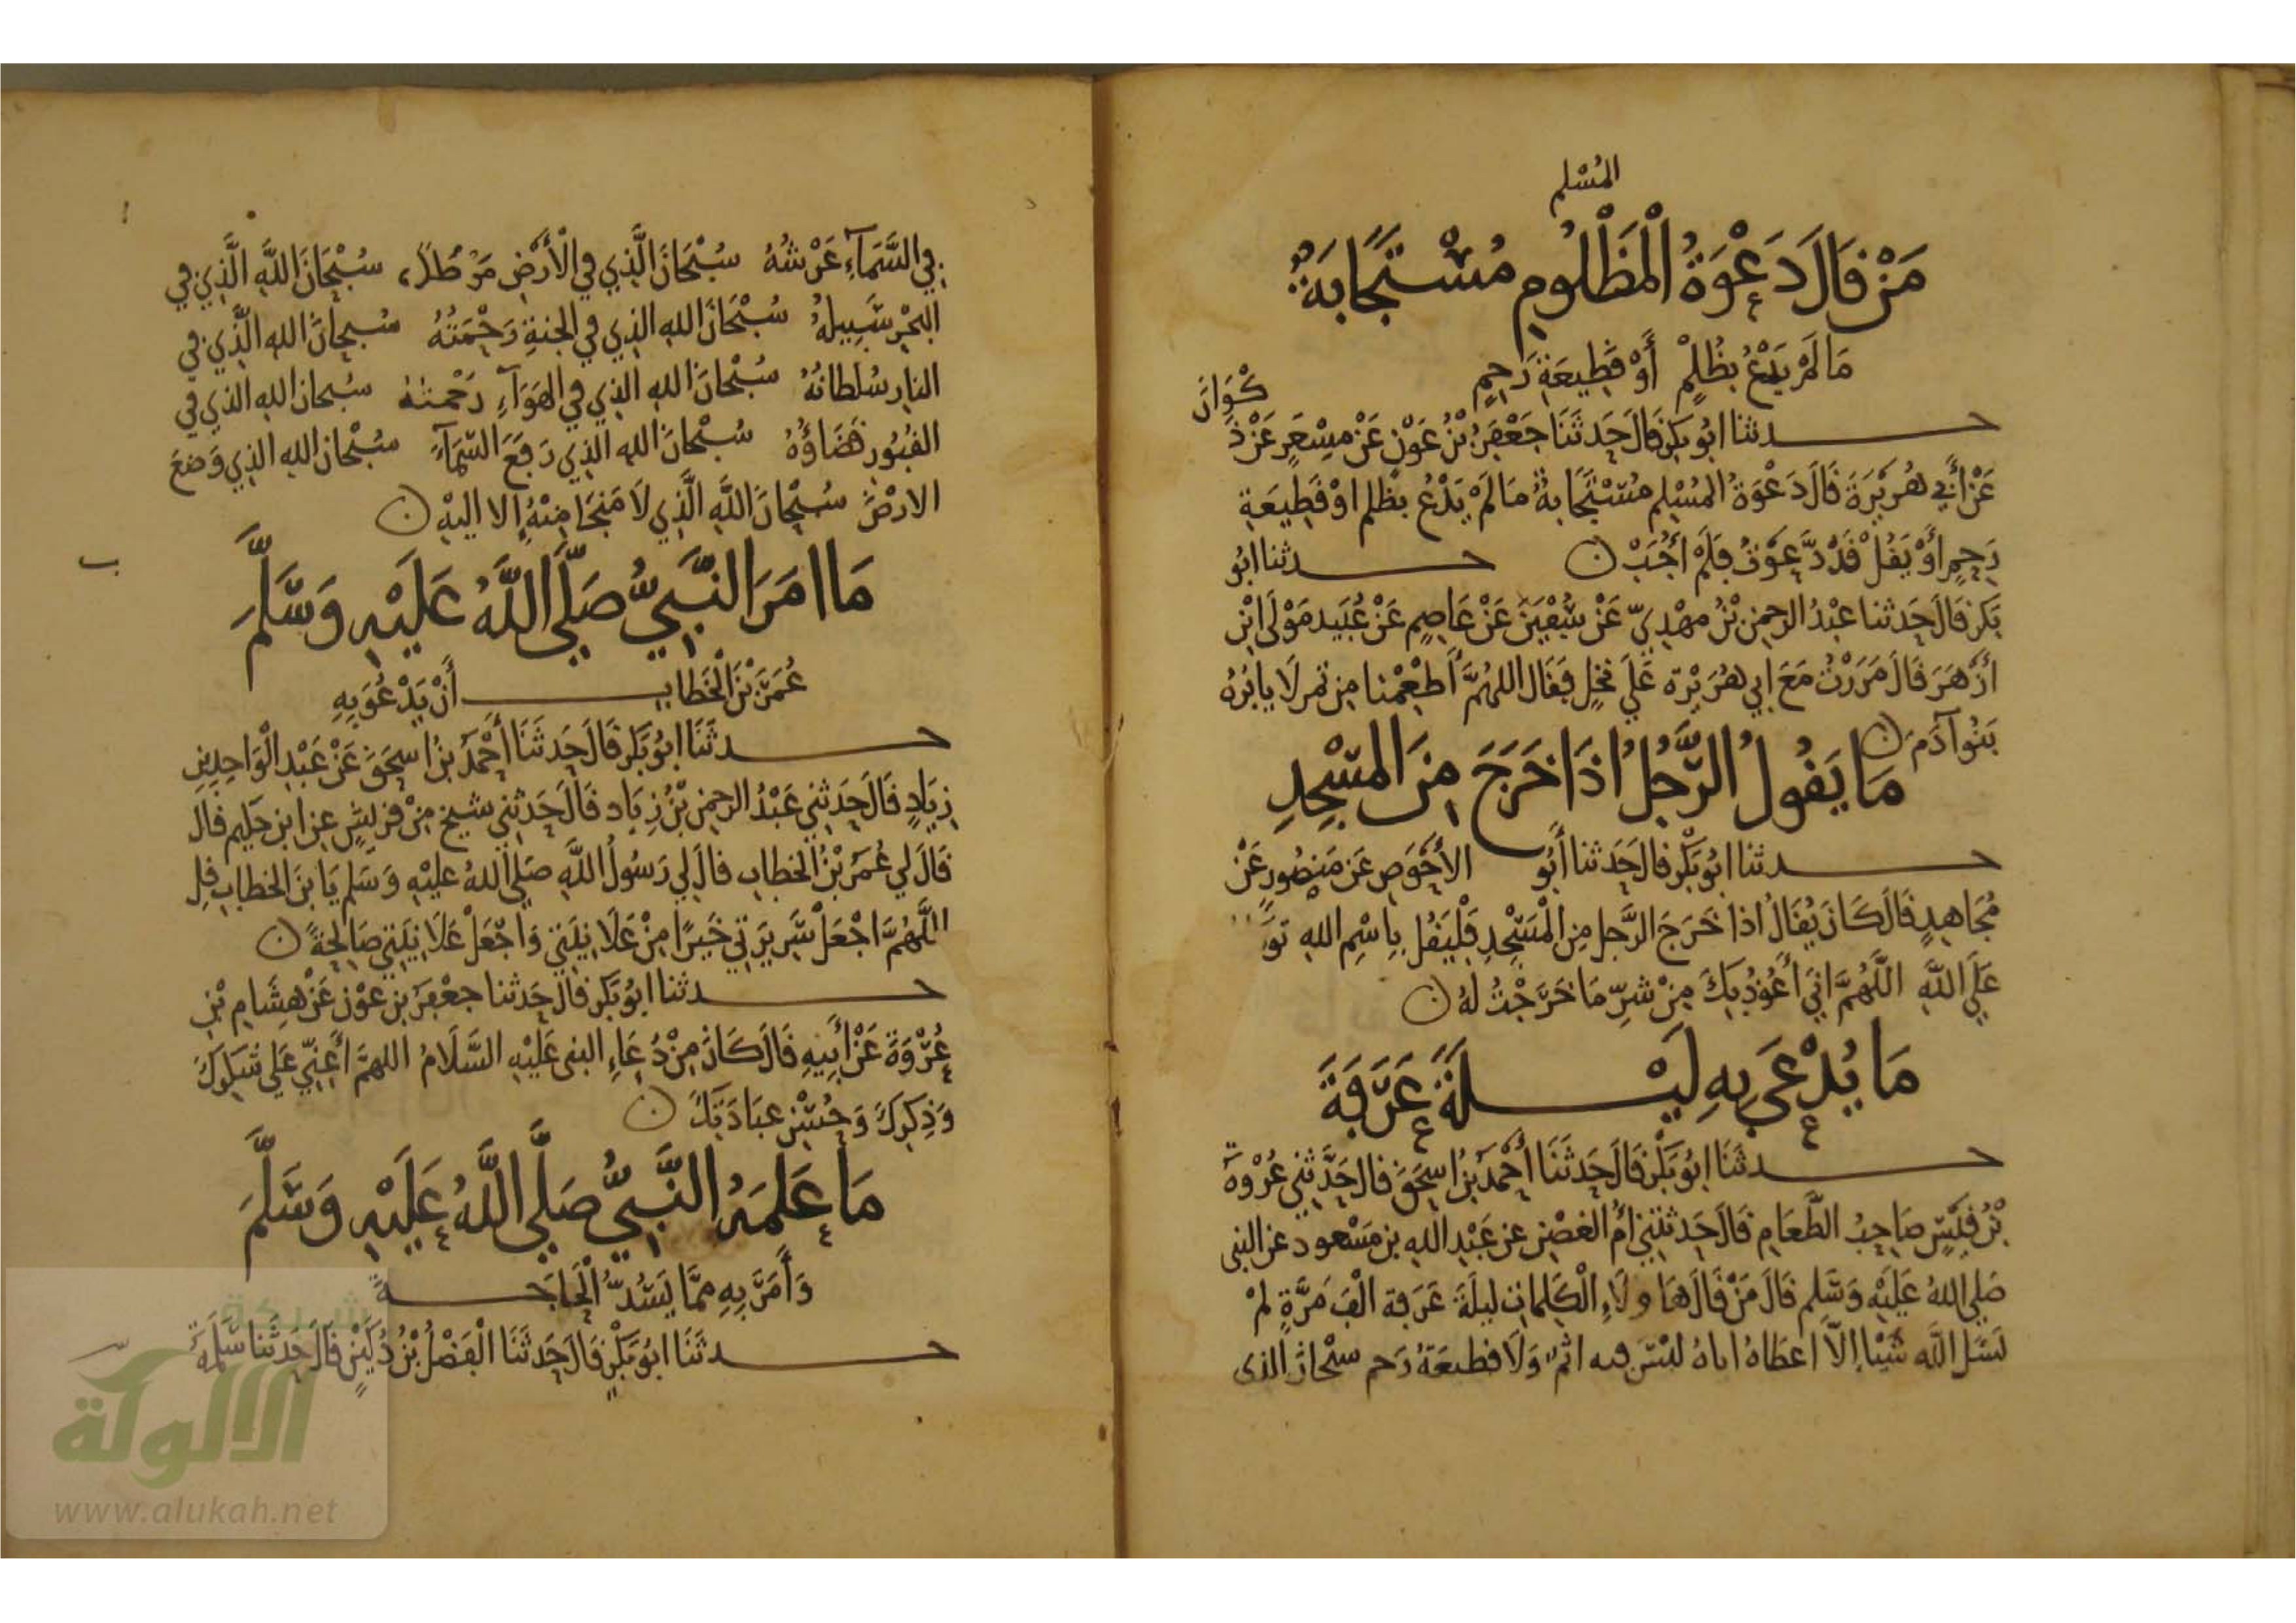 المُسْلم
مَنْ قَالَ دَعْوَةُ الْمَظْلُومِ مُسْتَجَابَةٌ
مَا لَمْ يَدْعُ بظُلْمٍ أَوْ قَطِيعَةِ رَحِمٍ
حدثنا ابُو بَكرٍ قَالَ حَدثَنَا جَعْفَرُ بْنُ عَوْنٍ عَنْ مِسْعَرٍ عَنْ ذَ
كْوَانَ
عَنْ أَبِي هُرَيْرَةَ قَالَ دَعْوَةُ المُسْلِمِ مُسْتَجَابةٌ مَا لَمْ يَدْعُ بظلم اوْ قَطِيعَةِ
رَحِمٍ أوْ يَقُلْ قَدْ دَعَوْتُ فَلَمْ أُجَبْ ن حدثنا ابُو
بَكرٍ قَالَ حَدثنا عبْدُ الرحمن بْنُ مهْدِيّ عَنْ سُفْيَنَ عَنْ عَاصِمٍ عَنْ عُبَيد مَوْلَى ابْن
أزْهَرَ قَالَ مَرَرْتُ مَعَ ابِي هُرَيْرَة عَلَى نخْلٍ فَقَال اللهُمَّ أَطْعِمْنا مِن تمر لَا يابُرُهُ
بَنُوا آدَمَ ن
مَا يَقُولُ الرَّجُلُ اذَا خَرَجَ مِنَ المَسْجِدِ
حدثنا ابُو بَكْرٍ قَال حَدَثنا أَبُو الأَحْوَصِ عَن مَنصُورٍ عَنْ
مُجَاهِدٍ قَالَ كَانَ يُقَالُ اذا خَرَجَ الرَّجل مِن الْمَسْجِدِ فَلْيَقُل بِاسْمِ اللهِ تو
عَلَى اللَّهِ اللَّهُمَّ انِّي أعُوذُ بِكَ مِنْ شَرِّ مَا خَرَجْتُ لهُ ن
مَا يُدْعَى بِهِ لَيْلَةَ عَرَفَةَ
حدثَنَا ابُو بَكْرٍ قَالَ حَدثَنَا أَحْمَدُ بْنُ اسحَقَ قال حَدَّثنِي عُرْوةُ
بْنُ قَيْسٍ صَاحِبُ الطَّعَامِ قَالَ حَدثتْنِي أُمُّ الفضْلِ عن عَبْدِ اللهِ بن مَسْعود عن النبى
صَلى اللهُ عَلَيْهِ وَسَلم قَالَ مَنْ قَالَ هَاولَاءِ الْكَلِماتِ ليلَةَ عَرَفة الْفَ مَرَّةٍ لمْ
يَسَلِ اللَّه شَيْئا إلَّا اعطَاهُ اياهُ ليْسَ فيه اثمٌ وَلَا قطيعَةُ رَحم سبْحانَ الذى
في السَّمَاءِ عَرْشُهُ سُبْحَانَ الَّذِي في الْأَرْضِ مَوْطِئُهُ سُبْحَانَ اللَّهِ الَّذِي في
البَحْرِ سَبِيلهُ سُبْحَانَ اللهِ الذِي في الجنةِ رَحْمَتُهُ سُبحانَ اللهِ الَّذِي في
النارِ سُلطانُهُ سُبْحَانَ اللهِ الذِي في الهَوَآءِ رَحْمتُهُ سُبحانَ اللهِ الذي في
القُبُورِ قَضَاؤُهُ سُبْحَانَ اللهِ الذِي رَفعَ السَّمَاءَ سُبْحَانَ اللهِ الذِي وَضعَ
الارْضَ سُبْحَانَ اللَّهِ الَّذِي لَا مَنجَا مِنْهُ إلا اليْهِ ن
مَا امَرَ النَّبِيُّ صَلَّى اللَّهُ عَلَيْهِ وَسَلَّمَ
عُمَرَ بْنَ الْخَطَابِ أَنْ يَدْعُوَ بِهِ
حدثَنَا ابُو بَكرٍ قَالَ حَدثَنَا أَحْمَدُ بْنُ اسحَقَ عَنْ عَبْدِ الْوَاحِدِ بنِ
زِيَادٍ قَالَ حَدَثنِي عَبْدُ الرحمن بْنُ زِيَاد قَالَ حَدثنِي شيخ مِنْ قريشٍ عن ابن حَكيم قال
قَالَ لي عُمَرُ بْنُ الخطاب قالَ لي رَسُولُ اللَّهِ صَلى اللهُ عليْهِ وَسَلم يَا بنَ الخطاب قل
اللَّهُمَّ اجْعَلْ سَرِيرَتِي خَيرًا مِنْ عَلَانِيَتِي وَاجْعَلْ عَلَانِيَتِي صَالِحَةً ن
حدثنا ابُو بَكرٍ قال حَدثنا جعْفَر بن عوْن عَنْ هِشَامِ بْن
عُرْوَةَ عَنْ أَبِيهِ قَالَ كَانَ مِنْ دُعَاءِ النبى عَلَيْهِ السَّلَامُ اللهمَّ أَعِنِّي عَلى شكركَ
وَذِكرِكَ وَحُسْنِ عبَادَتِكَ ن
مَا عَلمَهُ النَّبِيُّ صَلَّى اللَّهُ عَلَيْهِ وَسَلَّمَ
وَأَمَرَ بِهِ ممَّا يَسُدُّ الْحَاجَةَ
حدثَنَا ابُو بَكْرٍ قَالَ حَدثَنَا الْفَضْلُ بْنُ دُكَيْنٍ قَالَ حَدثَنا سَلَمَةُ
شبكة
الألوكة
www.alukah.net